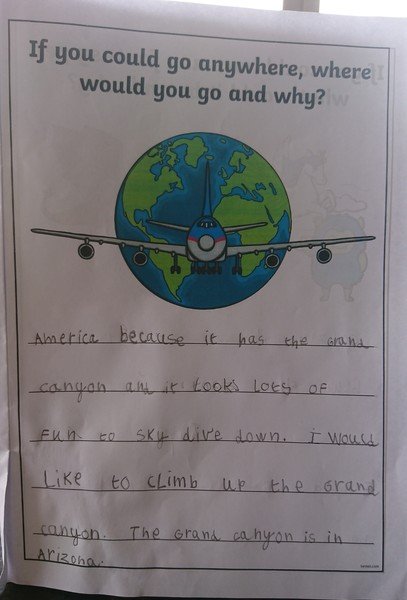 If you could go anywhere, where
would you go and why?
America because it has the grand
canyon and it looks lots of
fun to sky dive down. i would
Like to climb up the grand
canyon. The grand canyon is in
Arizona.